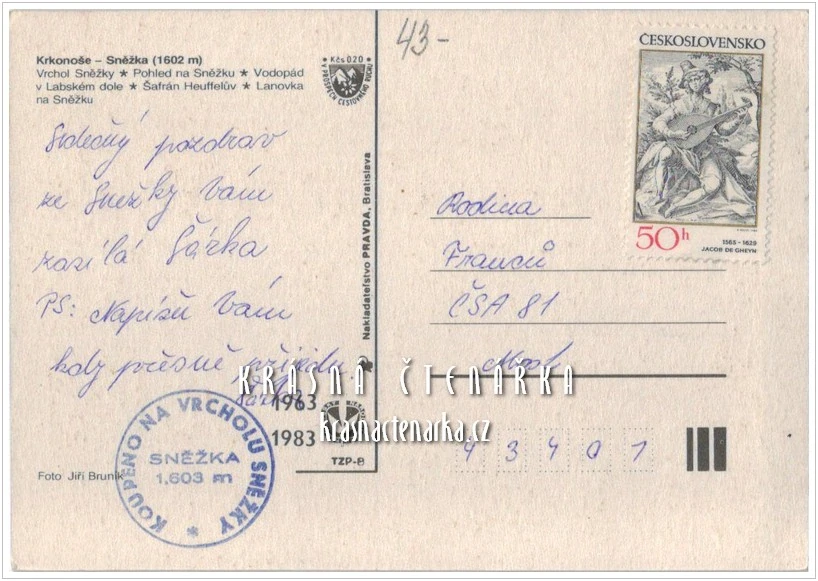 43-
Krkonoše – Sněžka (1602 m)
Vrchol Sněžky ★ Pohled na Sněžku ★ Vodopád
v Labském dole ★ Šafrán Heuffelův ★ Lanovka
na Sněžku
Kčs 020
V PROSPĚCH CESTOVNÉHO RUCHU
ČESKOSLOVENSKO
50h
1565-1629
JACOB DE GHEYN
Srdečný pozdrav
ze Sněžky Vám
zasílá Šárka
PS: Napíšu Vám
kdy přesně přijedu
Šárka
Nakladatelstvo PRAVDA, Bratislava
Rodina
Franců
ČSA 81
Most
43401
KRÁSNÁ ČTENÁŘKA
krasnactenarka.cz
1963
1983
TZP-B
Foto Jiří Bruník
KOUPENO NA VRCHOLU SNĚŽKY
SNĚŽKA
1,603 m